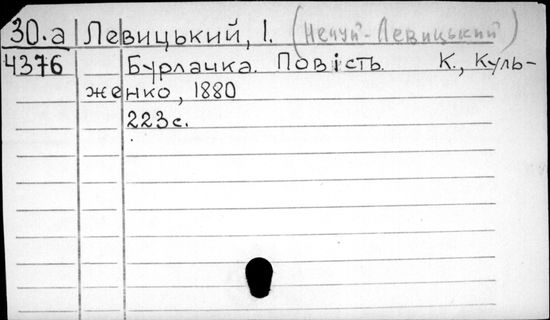 30.а Левицький, І. (Нечуй-Левицький)
4376 Бурлачка. Повість. К., Куль-
женко, 1880
223с.